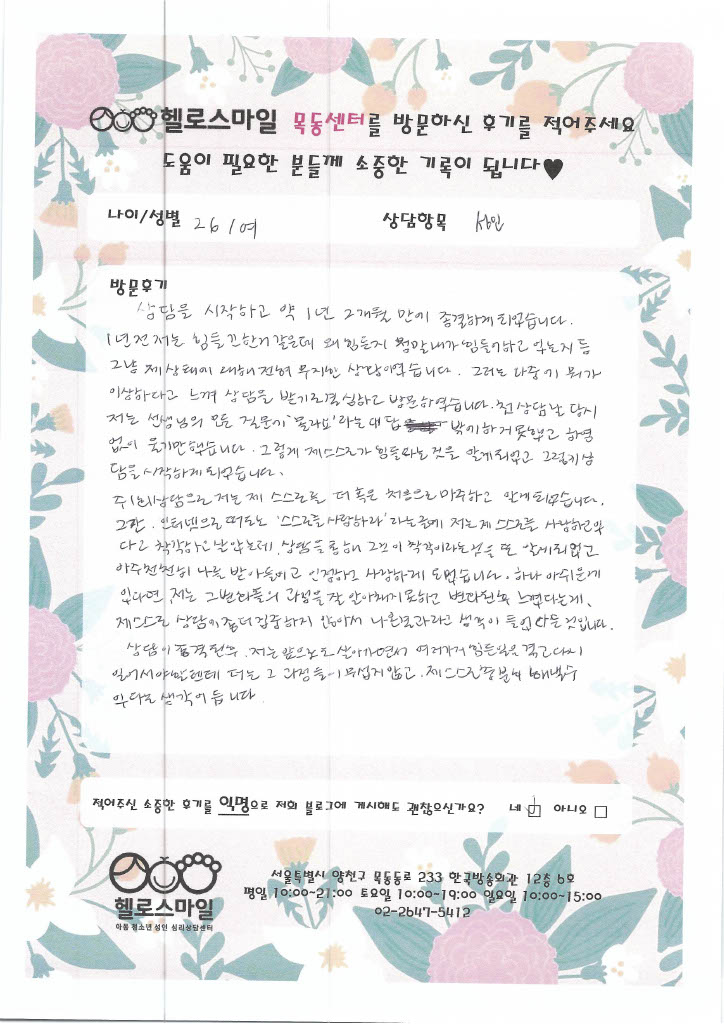 헬로스마일 목동센터를 방문하신 후기를 적어주세요
도움이 필요한 분들께 소중한 기록이 됩니다♥
나이/성별 26/여 상담항목 성인
방문후기
상담을 시작하고 약 1년 2개월 만에 종결하게 되었습니다.
1년전 저는 힘들긴한거 같은데 왜 힘든지 정말 내가 힘들어하고 있는지 등
그냥 제 상태에 대해 전혀 무지한 상담이였습니다. 그러는 다중 뭔가
이상하다고 느껴 상담을 받기로 결심하고 방문하였습니다. 첫 상담날 당시
저는 선생님의 모든 질문에 '몰라요'라는 대답 밖에 하지 못했고 하염
없이 울기만 했습니다. 그렇게 제 스스로가 힘들다는 것을 알게되었고 그렇게 상
담을 시작하게 되었습니다.
주1회 상담으로 저는 제 스스로를 더 혹은 처음으로 마주하고 알게 되었습니다.
그간 인터넷으로 떠도는 '스스로를 사랑하라'라는 말에 저는 제 스스로를 사랑하고 있
다고 착각하고 살았는데, 상담을 통해 그것이 착각이라는 것을 또 알게되었고
아주 천천히 나를 받아들이고 인정하고 사랑하게 되었습니다. 하나 아쉬운게
있다면, 저는 그 변화들의 과정을 잘 알아채지 못하고 변화된 후 느꼈다는게,
제 스스로 상담에 좀 더 집중하지 않아서 나온 결과라고 생각이 들었다는 것입니다.
상담이 종결된 후, 저는 앞으로도 살아가면서 여러가지 힘든일을 겪고 다시
일어서야 할텐데 더는 그 과정들이 무섭지 않고, 제 스스로 충분히 해낼 수
있다고 생각이 듭니다.
적어주신 소중한 후기를 익명으로 저희 블로그에 게시해도 괜찮으신가요? 네 ☑ 아니오 □
헬로스마일
아동 청소년 성인 심리상담센터
서울특별시 양천구 목동동로 233 한국방송회관 12층 6호
평일 10:00~21:00 토요일 10:00~19:00 일요일 10:00~15:00
02-2647-5412